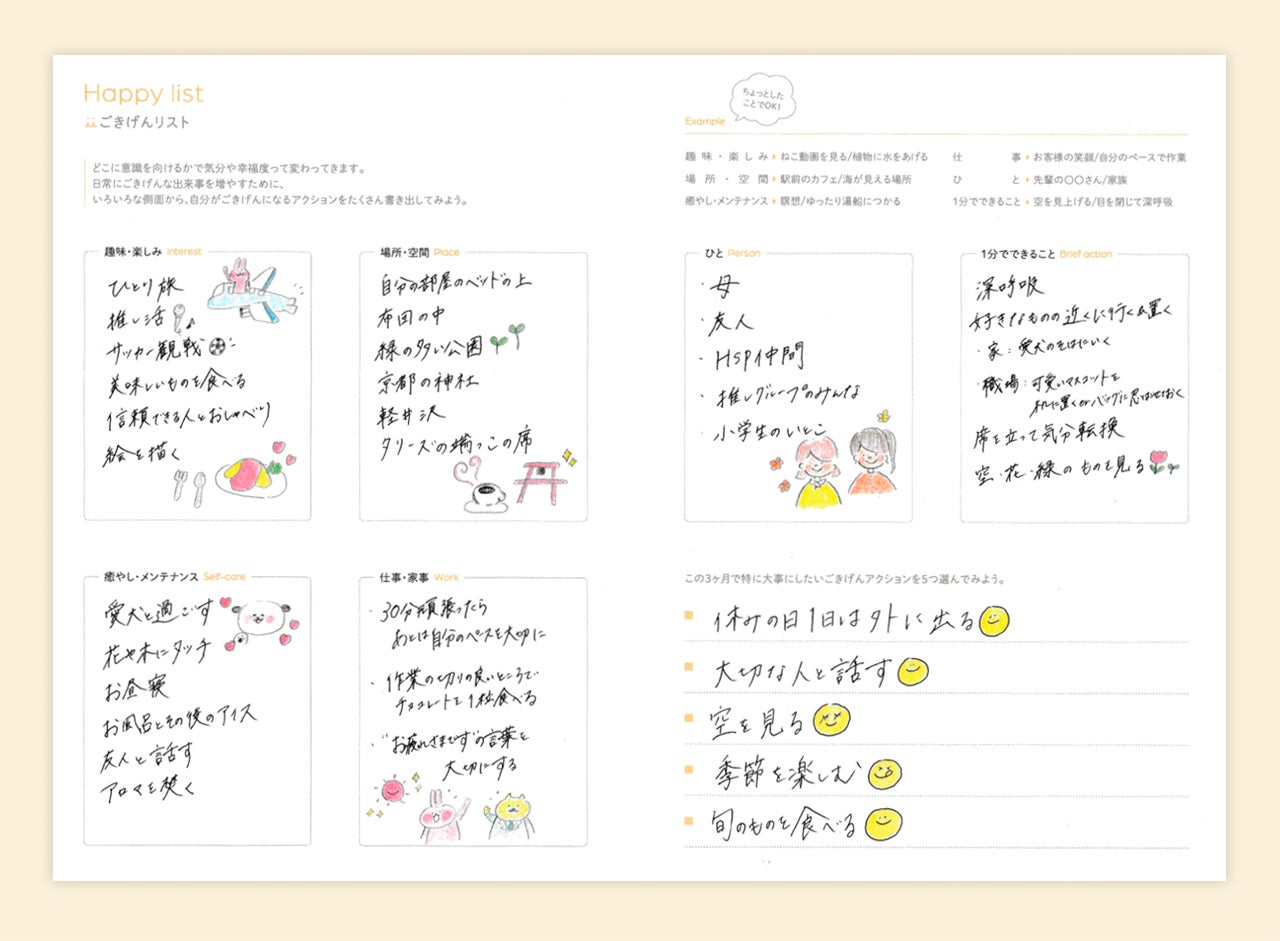 Happy list
ごきげんリスト
どこに意識を向けるかで気分や幸福度って変わってきます。
日常にごきげんな出来事を増やすために、
いろいろな側面から、自分がごきげんになるアクションをたくさん書き出してみよう。
趣味・楽しみ Interest
ひとり旅
推し活
サッカー観戦
美味しいものを食べる
信頼できる人とおしゃべり
絵を描く
場所・空間 Place
自分の部屋のベッドの上
布団の中
緑の多い公園
京都の神社
軽井沢
タリーズの端っこの席
癒やし・メンテナンス Self-care
愛犬と過ごす
花や木にタッチ
お昼寝
お風呂とその後のアイス
友人と話す
アロマを焚く
仕事・家事 Work
・30分頑張ったら
あとは自分のペースを大切に
・作業の切りの良いところで
チョコレートを1粒食べる
・"お疲れさまです"の言葉を
大切にする
ちょっとした
ことでOK!
Example
趣味・楽しみ ねこ動画を見る/植物に水をあげる
場所・空間 駅前のカフェ/海が見える場所
癒やし・メンテナンス 瞑想/ゆったり湯船につかる
仕事 お客様の笑顔/自分のペースで作業
ひと 先輩の〇〇さん/家族
1分でできること 空を見上げる/目を閉じて深呼吸
ひと Person
・母
・友人
・HSP仲間
・推しグループのみんな
・小学生のいとこ
1分でできること Brief action
深呼吸
好きなものの近くに行く&置く
・家：愛犬のそばにいく
・職場：可愛いマスコットを
机に置くorバッグに忍ばせておく
席を立って気分転換
空・花・緑のものを見る
この3ヶ月で特に大事にしたいごきげんアクションを5つ選んでみよう。
休みの日1日は外に出る
大切な人と話す
空を見る
季節を楽しむ
旬のものを食べる